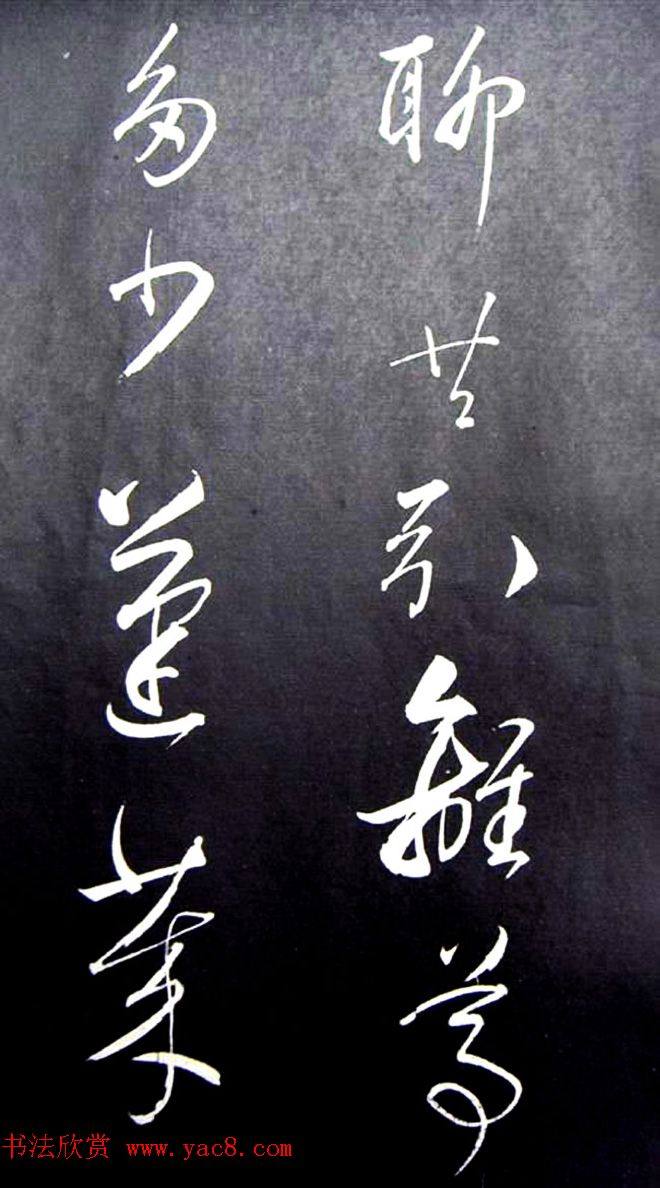 聊共引離尊
多少蓬萊
书法欣赏 www.yac8.com